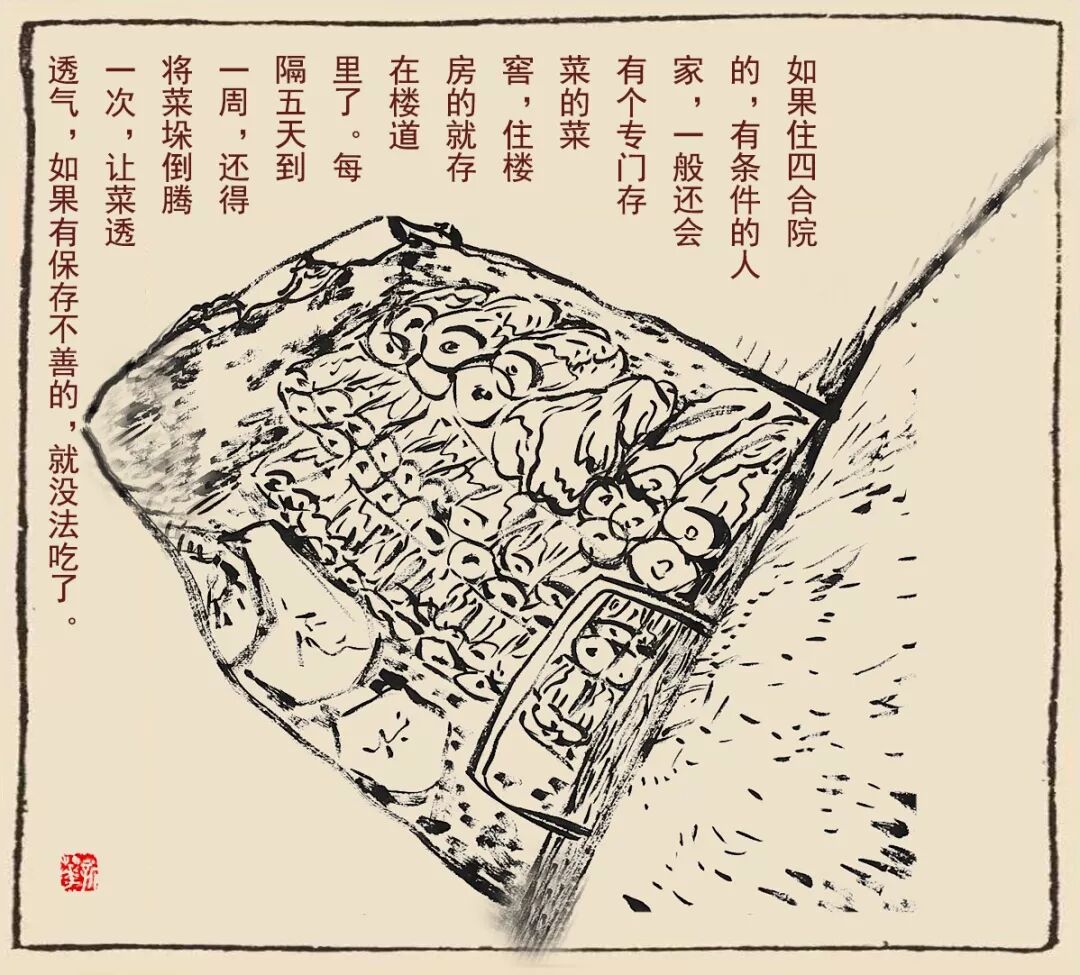 如果住四合院
的，有条件的人
家，一般还会
有个专门存
菜的菜
窖，住楼
房的就存
在楼道
里了。每
隔五天到
一周，还得
将菜垛倒腾
一次，让菜透
透气，如果有保存不善的，就没法吃了。